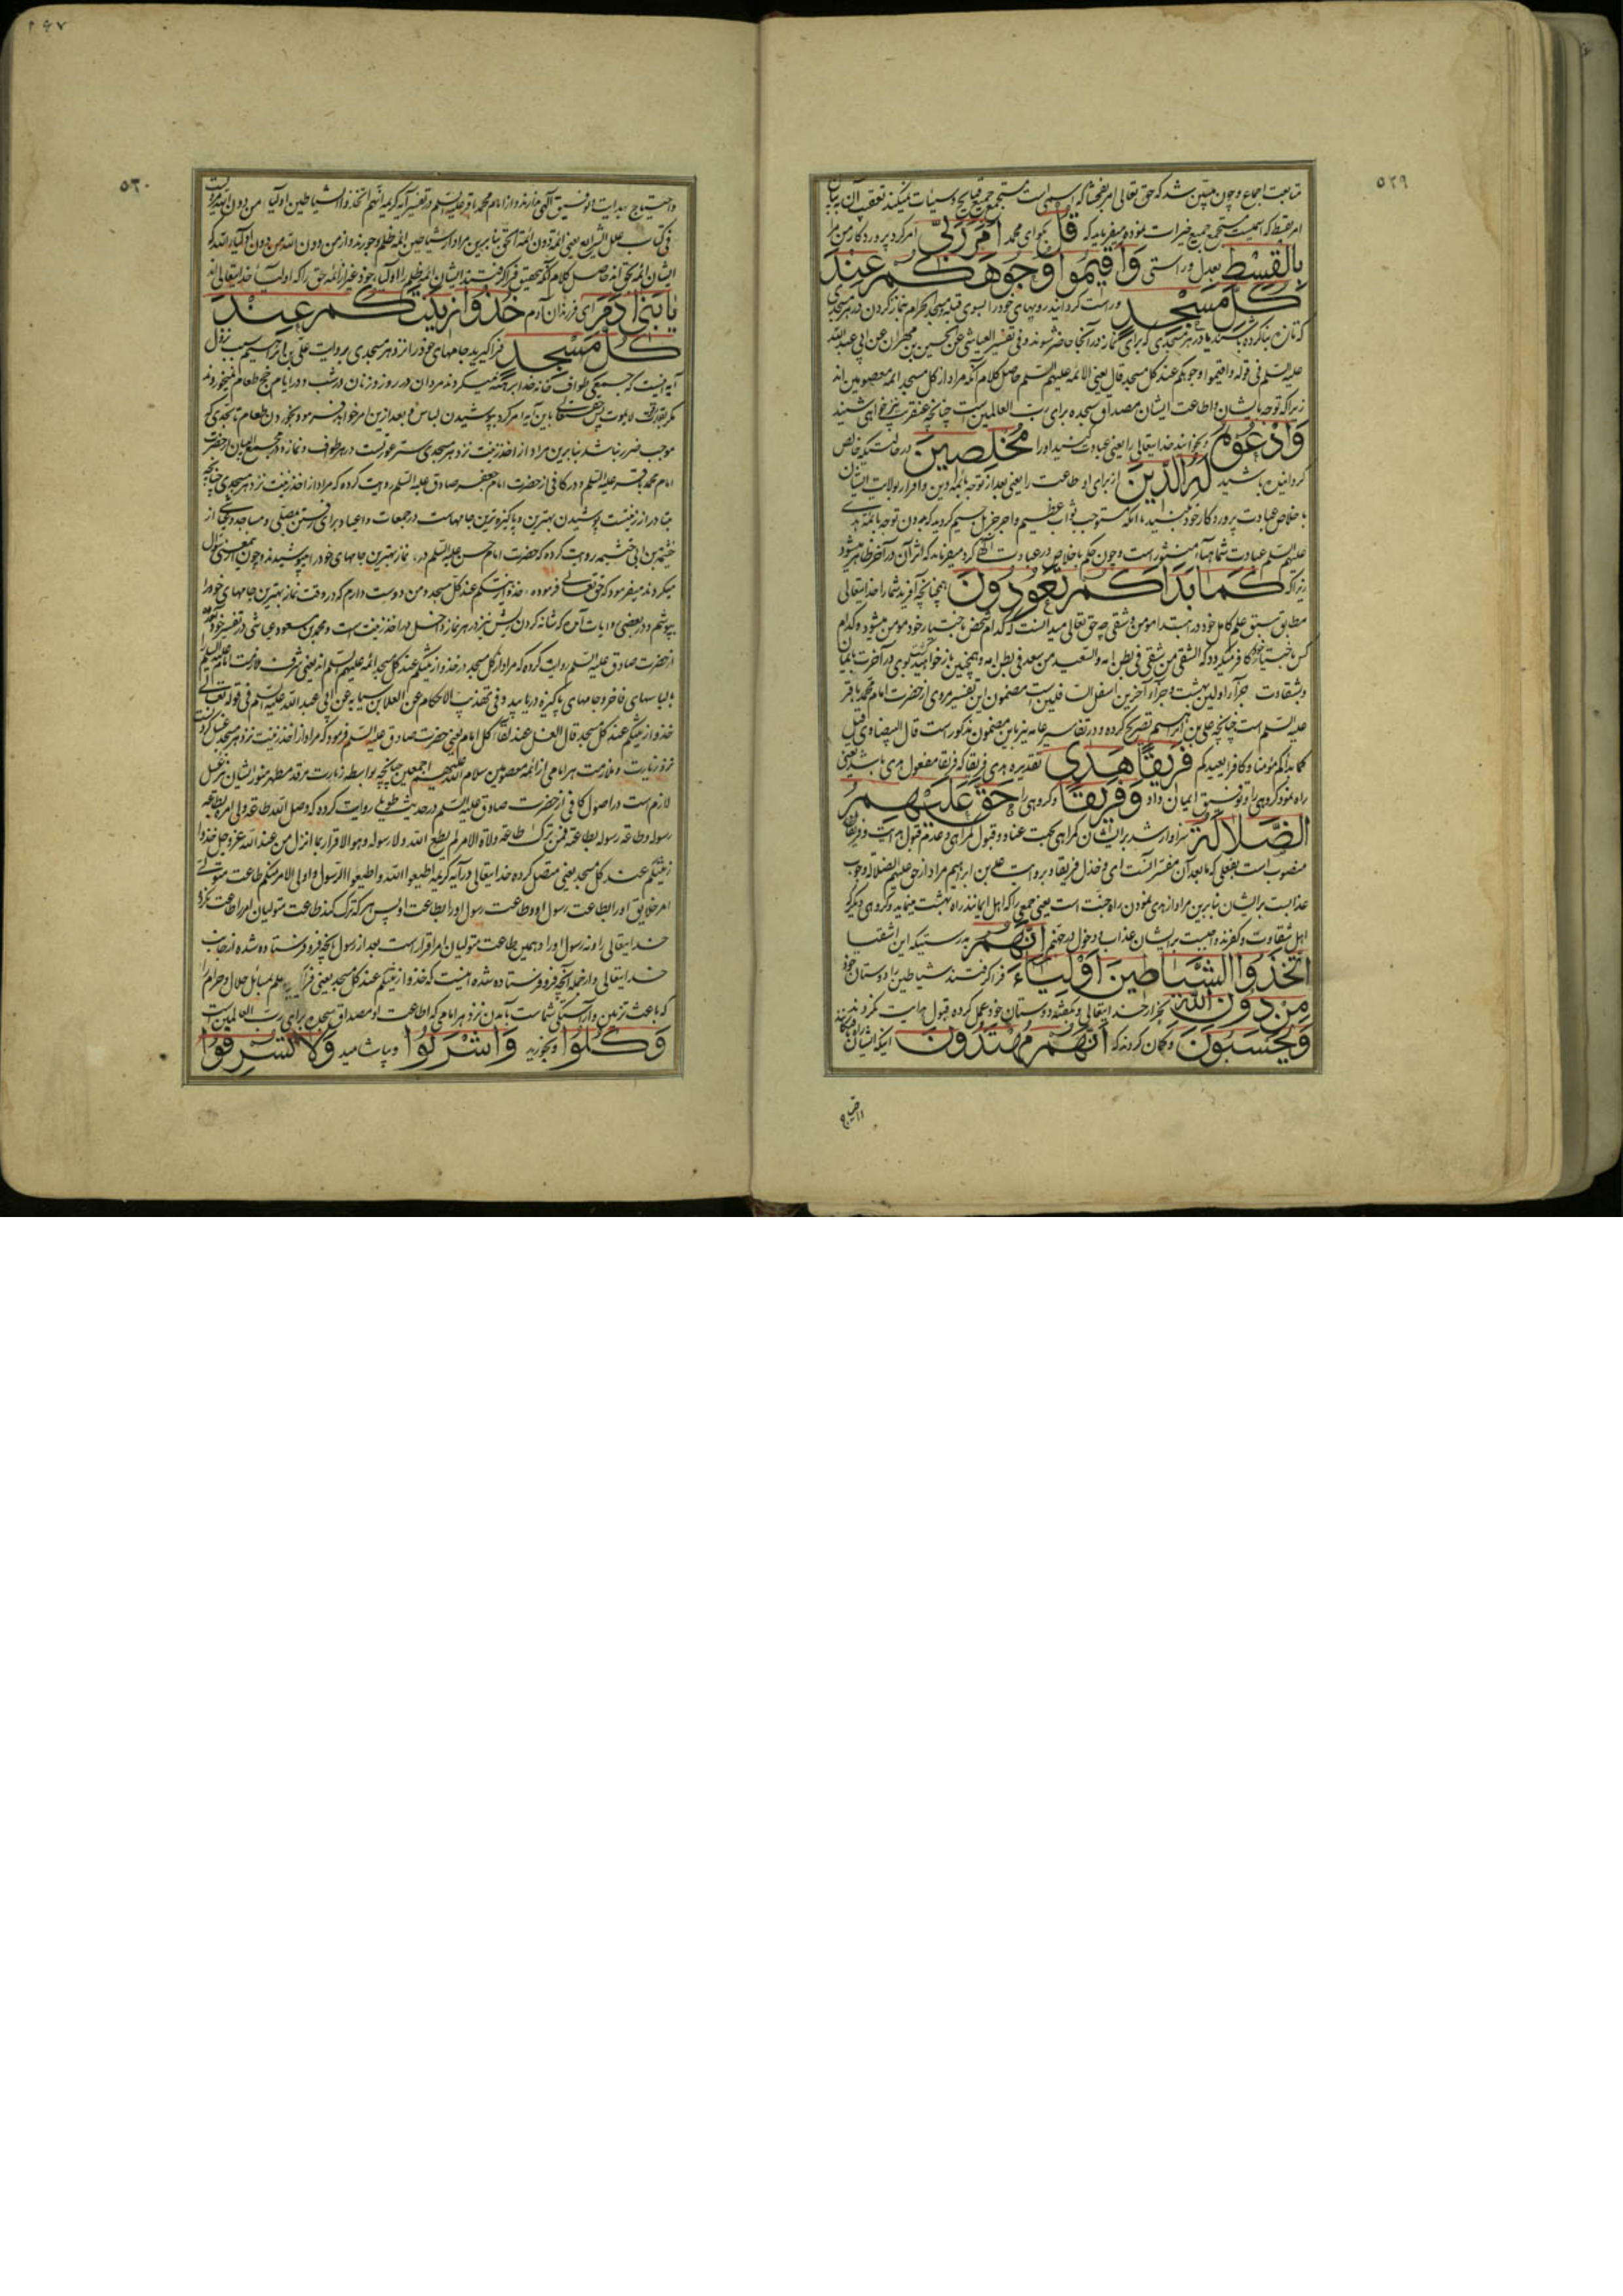 ٥٢٩
متابعت اجماع و چون مبین شد که حق تعالی امر بفحشا که اسمی است مستجمع جمیع قبایح و سیئات نمیکند تعقب آن به بیان
امر بقسط که اسمیست مستجمع جمیع خیرات نموده میفرماید که قل بگو ای محمد امر ربی امر کرد پروردکار من مرا
بالقسط بعدل و راستی واقیموا وجوهکم عند
کل مسجد و راست کردانید رویهای خود را بسوی قبله مسجد الحرام بنماز کردن در هر مسجدی
که تازه بنا کرده باشند یا در هر مسجدی که برای نماز در آنجا حاضر شوند و فی تفسیر العیاشی عن الحسین بن مهران عن ابی عبد الله
علیه السلم فی قوله واقیموا وجوهکم عند کل مسجد قال یعنی الائمه علیهم السلم حاصل کلام آنکه مراد از کل مسجد ائمه معصومین اند
زیرا که توجه بایشان و اطاعت ایشان مصداق سجده برای رب العالمین است چنانچه عنقریب نیز خواهی شنید
وادعوه و بخوانید خدایتعالی را یعنی عبادت کنید او را مخلصین در حالتیکه خالص
کردانیده باشید له الدین از برای او طاعت را یعنی بعد از توجه بائمه دین و اقرار بولایت ایشان
باخلاص عبادت پروردکار خود کنید تا آنکه مستوجب ثواب عظیم و اجر جزیل شوید کردید که بدون توجه بائمه هدی
علیهم السلم عبادت شما هباء منثور است و چون حکم باخلاص در عبادت کرد میفرماید که اثر آن در آخرت ظاهر میشود
زیرا که کما بداکم تعودون همچنانچه آفرید شما را خدایتعالی
مطابق سبق علم کامل خود در ابتدا مؤمن و شقی چه حق تعالی میدانست که کدام شخص باختیار خود مومن میشود و کدام
کس باختیار خود کافر میکردد که الشقی من شقی فی بطن امه والسعید من سعد فی بطن امه و همچنین باز خواهید کردید در آخرت بایمان
و بشقاوت جزآء اولین بهشت و جزآء آخرین اسفل السافلین است مضمون این تفسیر مروی از حضرت امام محمد باقر
علیه السلم است چنانچه علی بن ابراهیم تصریح کرده و در تفاسیر عامه نیز باین مضمون مذکور است قال البیضاوی قیل
کما بداکم مؤمنا و کافرا یعیدکم فریقا هدی تقدیره هدی فریقا که فریقا مفعول هدی باشد یعنی
راه نمود کروهی را و توفیق ایمان داد وفریقا و کروهی را حق علیهم
الضلالة سزاوار شد بر ایشان کمراهی بجهت عناد و قبول کمراهی و عدم قبول هدایت و فریقا
منصوب است بفعلی که ما بعد آن مفسر آنست ای و خذل فریقا و بروایت علی بن ابراهیم مراد از حق علیهم الضلالة وجوب
عذابست بر ایشان بنا برین مراد از هدی نمودن راه جنت است یعنی جمعی را که اهل ایمانند راه بهشت مینماید و کروهی دیکر که
اهل شقاوت و کفرند واجبست بر ایشان عذاب و دخول در جهنم انهم بدرستیکه این اشقیا
اتخذوا الشیاطین اولیاء فرا کرفتند شیاطین را دوستان خود
من دون الله بجز از خدایتعالی و بکفته دوستان خود عمل کرده قبول هدایت نکردند
ویحسبون و کمان کردند که انهم مهتدون اینکه ایشان راه یافتکانند
٥٣٠
٢٦٧
و احتیاج بهدایت و توفیق آلهی ندارند و از امام محمد باقر علیه السلم در تفسیر آیه کریمه انهم اتخذوا الشیاطین اولیاء من دون الله مرویست
فی کتاب علل الشرایع یعنی ائمة دون ائمة الحق بنا برین مراد از شیاطین ائمه ظلم و جورند و از من دون الله من دون اولیاء الله که
ایشان ائمه بحق اند حاصل کلام آنکه بتحقیق فرا کرفتند ایشان ائمه ظلم را اولیاء خود غیر از ائمه حق را که اولیاء خدایتعالی اند
یا بنی آدم ای فرزندان آدم خذوا زینتکم عند
کل مسجد فرا کیرید جامهای خود را نزد هر مسجدی بروایت علی بن ابراهیم سبب نزول
آیه اینست که جمعی طواف خانه خدا برهنه میکردند مردان در روز و زنان در شب و در ایام حج طعام نمیخوردند
مکر بقدر قوت لا یموت پس حق تعالی باین آیه امر کرد بپوشیدن لباس و بعد ازین امر خواهد فرمود بخوردن طعام تا بحدی که
موجب ضرر نباشد بنا برین مراد از اخذ زینت نزد هر مسجدی ستر عورتست در هر طواف و نماز و در مجمع البیان از حضرت
امام محمد باقر علیه السلم و در کافی از حضرت امام جعفر صادق علیه السلم روایت کرده که مراد از اخذ زینت نزد هر مسجدی چنانچه
متبادر از زینت پوشیدن بهترین و پاکیزه ترین جامهاست در جمعات و اعیاد برای رفتن مصلی و مساجد و عیاشی از
خیثمة بن ابی خیثمه روایت کرده که حضرت امام حسن علیه السلم در نماز بهترین جامهای خود را میپوشیدند و چون جمعی سؤال
میکردند میفرمود که حق تعالی فرموده خذوا زینتکم عند کل مسجد و من دوست دارم که در وقت نماز بهترین جامهای خود را
بپوشم و در بعضی روایات آمده که شانه کردن ریش نیز در هر نماز داخل در اخذ زینت است و محمد بن مسعود عیاشی در تفسیر خود
از حضرت صادق علیه السلم روایت کرده که مراد از کل مسجد در خذوا زینتکم عند کل مسجد ائمه علیهم السلم اند یعنی شرف ملازمت ائمه علیهم السلم
بلباسهای فاخر و جامهای پاکیزه دریابید و فی تهذیب الاحکام عن العلا بن سیابه عن ابی عبد الله علیه السلم فی قوله تعالی
خذوا زینتکم عند کل مسجد قال الغسل عند لقاء کل امام یعنی حضرت صادق علیه السلم فرمود که مراد از اخذ زینت نزد هر مسجد غسل کردنست
نزد زیارت و ملازمت هر امامی از ائمه معصومین سلام الله علیهم اجمعین چنانچه بواسطه زیارت مرقد مطهر منور ایشان نیز غسل
لازم است در اصول کافی از حضرت صادق علیه السلم در حدیث طویلی روایت کرده که وصل الله طاعة ولی امره بطاعة
رسوله و طاعة رسوله بطاعته فمن ترک طاعة ولاة الامر لم یطع الله ولا رسوله و هو الاقرار بما انزل من عند الله عز و جل خذوا
زینتکم عند کل مسجد یعنی متصل کرده خدایتعالی در آیه کریمه اطیعوا الله و اطیعوا الرسول و اولی الامر منکم طاعت متولی
امر خلایق او را بطاعت رسول او و طاعت رسول او را بطاعت او پس هر که ترک کند طاعت متولیان امر را اطاعت نکرده
خدایتعالی را و نه رسول او را و همین طاعت متولیان امر اقرار است بعد از رسول بآنچه فرو فرستاده شده از جانب
خدایتعالی و از جمله آنچه فرو فرستاده شده اینست که خذوا زینتکم عند کل مسجد یعنی فرا کیرید علم مسایل حلال و حرام را
که باعث تزیین و آراستکی شماست بآمدن نزد هر امامی که اطاعت او مصداق سجده برای رب العالمین است
وکلوا و بخورید واشربوا و بیاشامید ولا تسرفوا